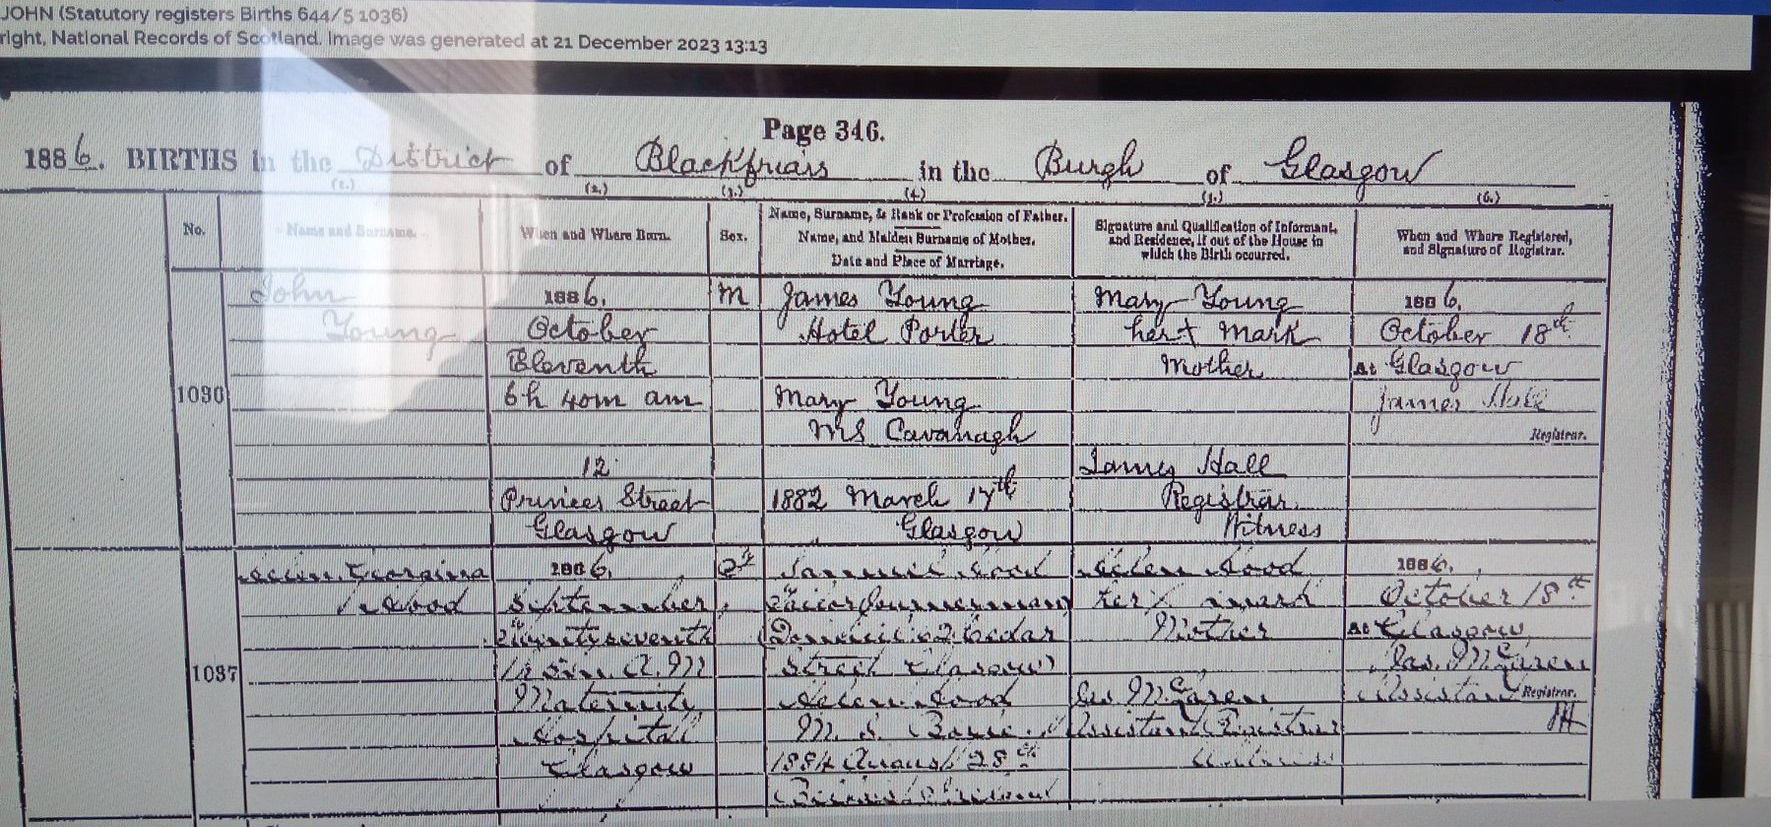 JOHN (Statutory registers Births 644/5 1036)
right, National Records of Scotland. Image was generated at 21 December 2023 13:13
Page 346.
1886. BIRTHS in the District of Blackfriars in the Burgh of Glasgow
(1.) (2.) (3.) (4.) (5.) (6.)
No. Name and Surname. When and Where Born. Sex. Name, Surname, & Rank or Profession of Father. Signature and Qualification of Informant, When and Where Registered,
Name, and Maiden Surname of Mother. and Residence, if out of the House in and Signature of Registrar.
Date and Place of Marriage. which the Birth occurred.
John 1886, M James Young Mary Young 1886,
Young October Hotel Porter her + mark October 18th
Eleventh Mother At Glasgow
1036 6h 40m am Mary Young James Hall
MS Cavanagh Registrar.
12 James Hall
Princes Street 1882 March 17th Registrar.
Glasgow Glasgow Witness
Georgina 1886, Helen Wood 1886,
Wood September her X mark October 18th
twenty seventh Mother At Glasgow
1037 Street Glasgow)
Maternity Helen Wood Assistant Registrar.
Hospital M. S. Assistant Registrar
Glasgow 1884 August 28th